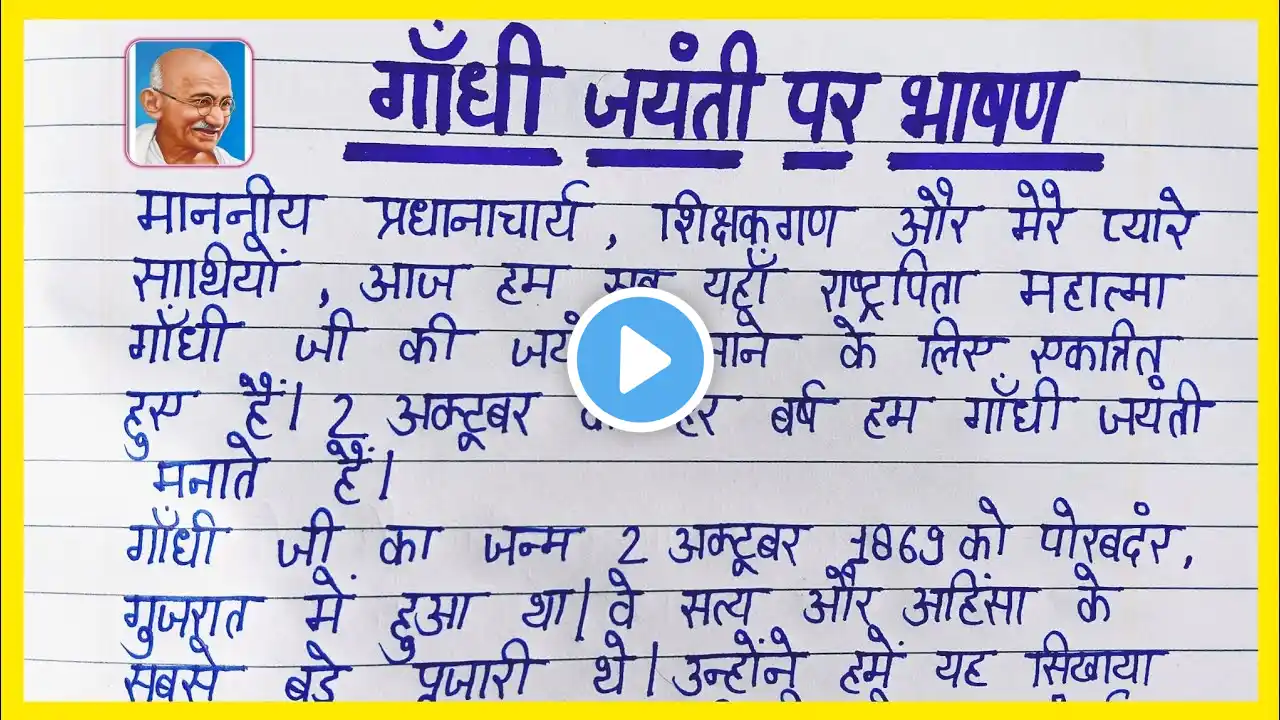 गाँधी जयंती पर भाषण
माननीय प्रधानाचार्य, शिक्षकगण और मेरे प्यारे
साथियों, आज हम सब यहाँ राष्ट्रपिता महात्मा
गाँधी जी की के लिए एकत्रित
हुए हैं। 2 अक्टूबर हर बर्ष हम गाँधी जयंती
मनाते हैं।
गाँधी जी का जन्म 2 अक्टूबर 1869 को पोरबदंर,
गुजरात में हुआ था। वे सत्य और अहिंसा के
सबसे बड़े पूजारी थे। उन्होंने हमें यह सिखाया